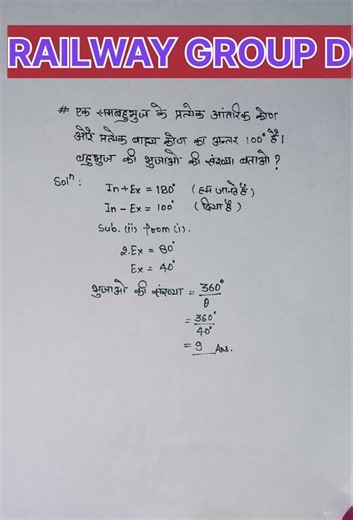 RAILWAY GROUP D
# एक समबहुभुज के प्रत्येक आंतरिक कोण
और प्रत्येक बाह्य कोण का अन्तर 100° है।
बहुभुज की भुजाओ की संख्या बताओ?
Solⁿ:
In + Ex = 180° (हम जानते है)
In - Ex = 100° (दिया है)
Sub. (ii) from (i).
2.Ex = 80°
Ex = 40°
भुजाओ की संख्या = 360°/θ
= 360°/40°
= 9 Ans.